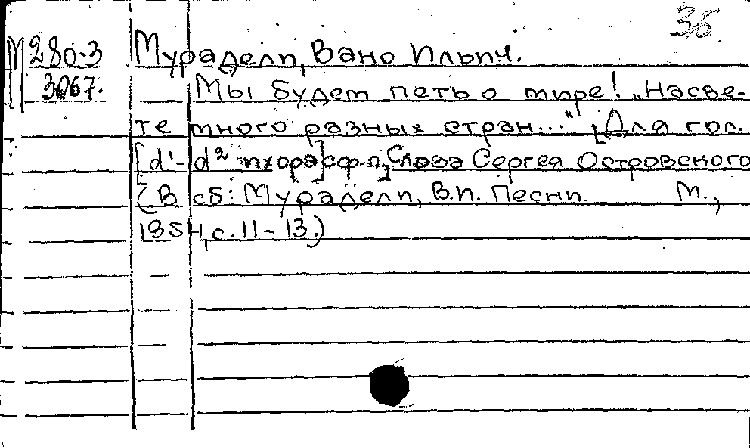 36
М 280-3 Мурадели, Вано Ильич.
3067. Мы будем петь о мире! „На све-
те много разных стран..." [Для гол.
[d¹-d² и хора] с ф-п.] Слова Сергея Островского
(В сб: Мурадели, В.И. Песни. М.,
1954, с. 11-13.)